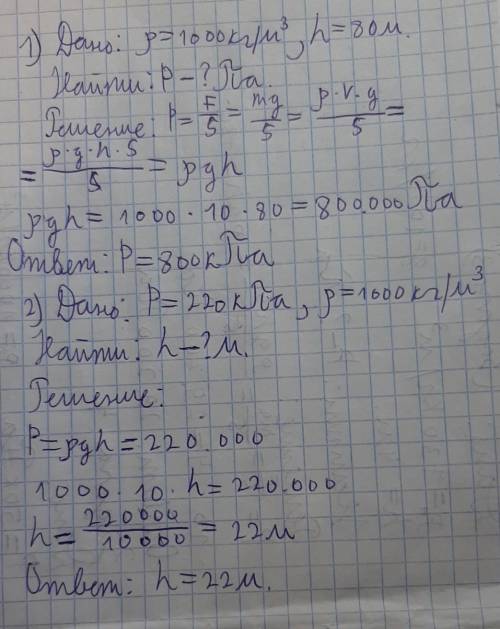 1) Дано: ρ=1000кг/м³, h=80м.
Найти: P-? Па.
Решение: P= F/S = mg/S = ρ·V·g/S =
= ρ·g·h·S/S = ρgh
ρgh = 1000 · 10 · 80 = 800.000 Па
Ответ: P=800кПа
2) Дано: P=220кПа, ρ=1000кг/м³
Найти: h-? м.
Решение:
P=ρgh=220.000
1000·10·h=220.000
h= 220000/10000 = 22м
Ответ: h=22м.